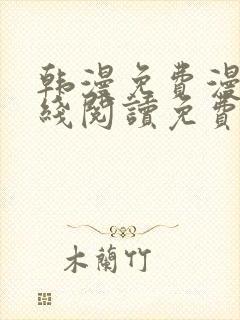 韩漫免費漫
綫閱讀免費
木蘭竹